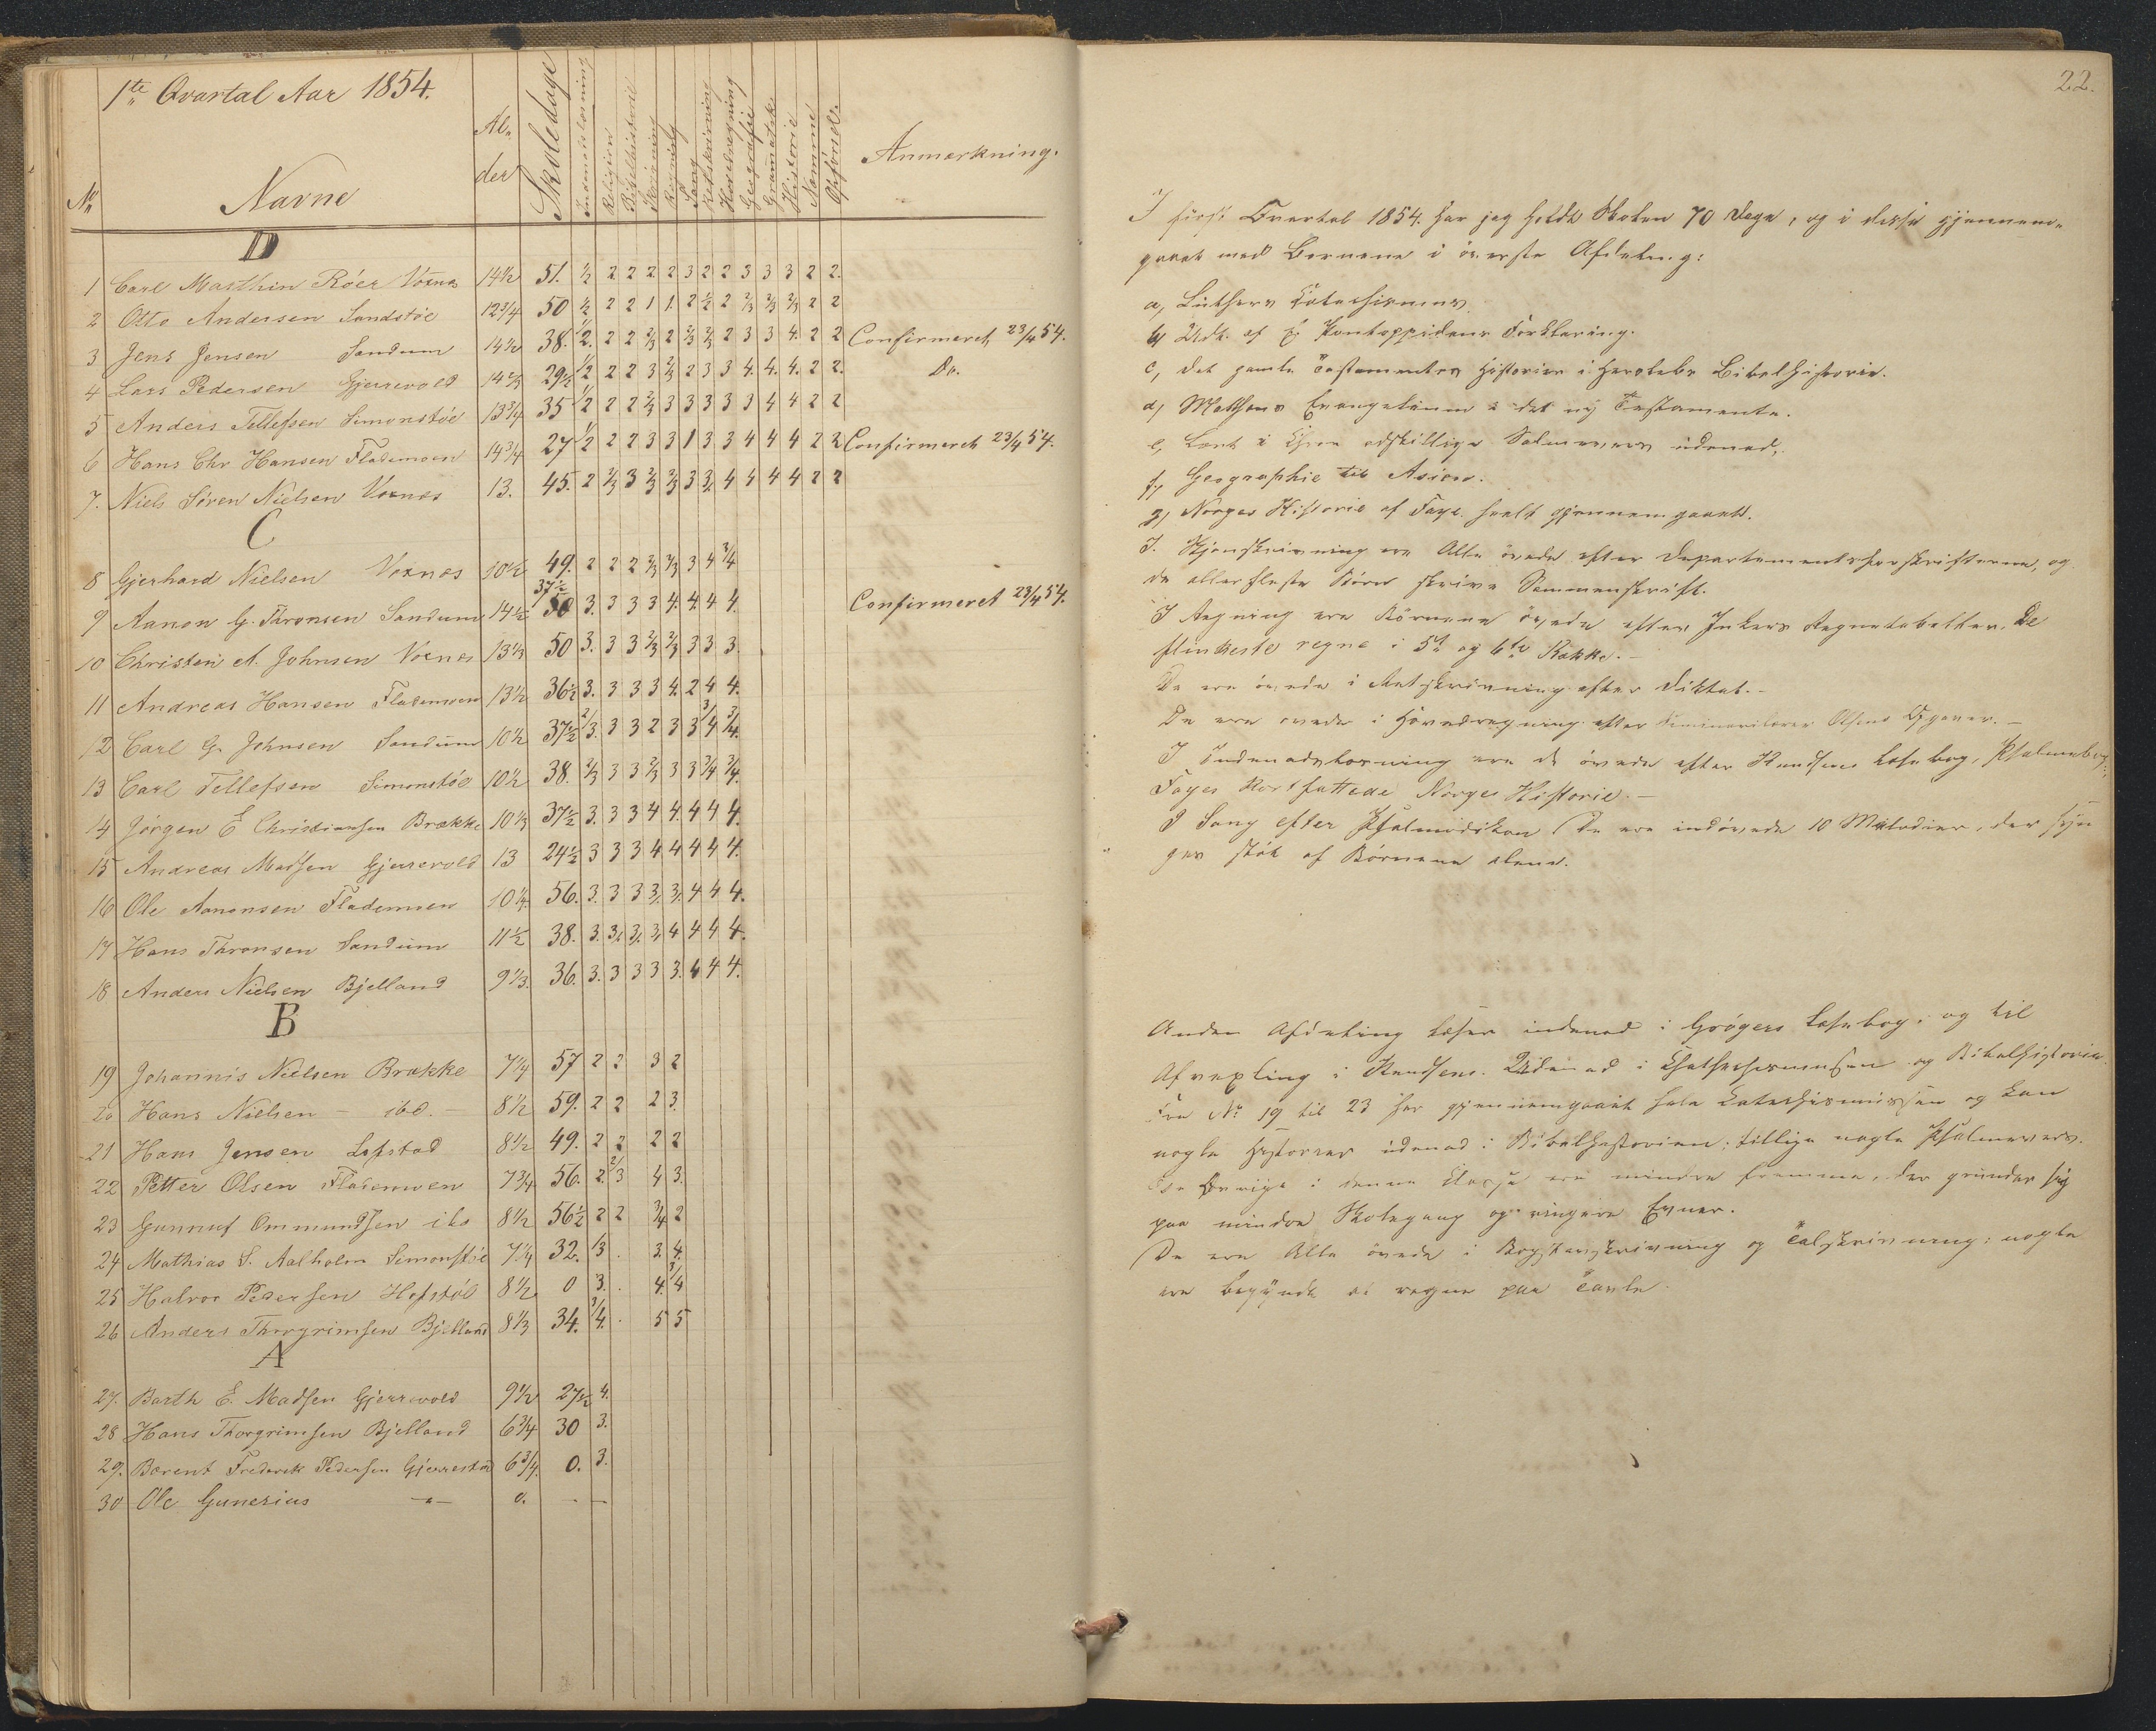 1te Qvartal Aar 1854.
No Navne Alder Skoledage Indenadslæsning Religion Bibelhistorie Skrivning Regning Sang Retskrivning Hovedregning Geografie Gramatik Historie Nemme Opförsel. Anmærkning.
D
1 Carl Marthin Röer Voxnes 14½ 51. ½ 2 2 2 2 3 2 2 3 3 3 2 2.
2 Otto Andersen Sandstöe 12¾ 50 ½ 2 2 1 1. 2 ½ 2 2/3 2/3 2/3 2 2
3 Jens Jensen Sandum 14½ 38. ½. 2 2 2/3 2 2/3 2/3 2 3 3 4. 2 2 Confirmeret 23/4 54.
4 Lars Pedersen Gjerrevold 14 2/3 29½ ½ 2 2 3 2/3 2 3 3 4. 4. 4. 2 2. Do.
5 Anders Tellefsen Simonstöe 13¾ 35 ½ 2 2 2/3 3 3 3 3 3 4 4 2 2
6 Hans Chr Hansen Flademoen 14¾ 27 ½ 2 2 3 3 1 3 3 4 4 4 2 2 Confirmeret 23/4 54.
7. Niels Sören Nielsen Voxnes 13. 45. 2 2/3 3 2/3 2/3 3 3/4 4 4 4 4 2 2
C
8 Gjerhard Nielsen Voxnes 10½ 49. 2 2 2 2/3 2/3 3 4 3/4
37½
9 Aanon G. Thronsen Sandum 14½ 50 3. 3 3 3 4. 4. 4. 4. Confirmeret 23/4 54.
10 Christen A. Johnsen Voxnes 13⅓ 50 3. 3 3 2/3 2/3 3 3 3.
11 Andreas Hansen Flademoen 13½ 36½ 3. 3 3 3 4. 2 4 4.
12 Carl G. Johnsen Sandum 10½ 37½ 2/3. 3 3 2 3 3 3/4 3/4.
13 Carl Tellefsen Simonstöe 10½ 38. 2/3 3 3 2/3 3 3 3/4 3/4.
14 Jörgen E Christiansen Brække 10⅓ 37½ 3. 3 3 4 4. 4 4 4.
15 Andreas Madsen Gjerrevold 13 24½ 3 3 3 4 4 4 4 4.
16 Ole Aanonsen Flademoen 10¼. 56. 3. 3 3 3/4 3/4 4 4 4.
17 Hans Thronsen Sandum 11½ 38. 3. 3/4 3/4 3/4 4 4 4 4.
18 Anders Nielsen Bjelland 9⅓. 36. 3. 3 3 3 3. 4 4 4.
B
19 Johannis Nielsen Brække 7¼ 57 2 2 3 2
20 Hans Nielsen – ibd. – 8½ 59. 2 2 2 3.
21 Hans Jensen Lofstad 8½ 49. 2 2 2 2
22 Petter Olsen Flademoen 7¾ 56. 2. 2/3 4 3.
23 Gunnuf Ommundsen ibd 8½ 56½ 2 2 3/4 2
24 Mathias S. Aalholm Simonstöe 7¼ 32. 3 . 3. 4.
25 Halvor Pedersen Hofstöl 8½ 0 3. . 4. 3/4
26 Anders Thorgrimsen Bjelland 8⅓ 34. 3/4. . 5 5
A
27. Barth E. Madsen Gjerrevold 9½ 27½ 4.
28 Hans Thorgrimsen Bjelland 6¾ 30 3.
29. Berent Frederik Pedersen Gjerrestad 6¾. 0. 3.
30 Ole Gunerius —„— 0. — —
22.
I först Qvartal 1854. har jeg holdt Skolen 70 Dage, og i disse gjennem-
gaaet med Bornene i överste Afdeling:
a, Luthers Catechismus.
b, Udt. af E. Pontoppidans Forklaring.
c, det gamle Testamentes Historier i Herslebs Bibelhistorie.
d, Matthæus Evangelium i det ny Testamente.
e, Lært i Chor adskillige Salmevers udenad.
f, Geographie til Asien.
g, Norges Historie af Faye. heelt gjennemgaaet.
I. Skjönskrivning ere Alle övede efter Departementsforskrifterne, og
de allerfleste Börn skrive Sammenskrift.
I Regning ere Börnene övede efter Inkers Regnetabeller. De
flinkeste regne i 5te og 6te Række. –
De ere övede i Retskrivning efter Diktat. –
De ere övede i Hovedregning efter Seminarilærer Olsens Opgaver. –
I Indenadslæsning ere de övede efter Knudsens Læsebog, Psalmebog,
Fayes Kortfattede Norges Historie. –
I Sang efter Psalmodikon (De ere indövede 10 Melodier, der syn
ges stöt af Börnene alene.
Anden Afdeling læser indenad i Grögers Læsebog, og til
Afvexling i Knudsens. Udenad i Chathechismusen og Bibelhistorie
Fra No 19 til 23 har gjennemgaaet hele Catechismussen og kan
nogle Historier udenad i Bibelhistorien; tillige nogle Psalmevers.
De Övrige i denne Classe ere mindre fremme, der grunder sig
paa mindre Skolegang og ringere Evner.
De ere Alle övede i Bogstavskrivning og Talskrivning; nogle
ere begyndt at regne paa Tavle.